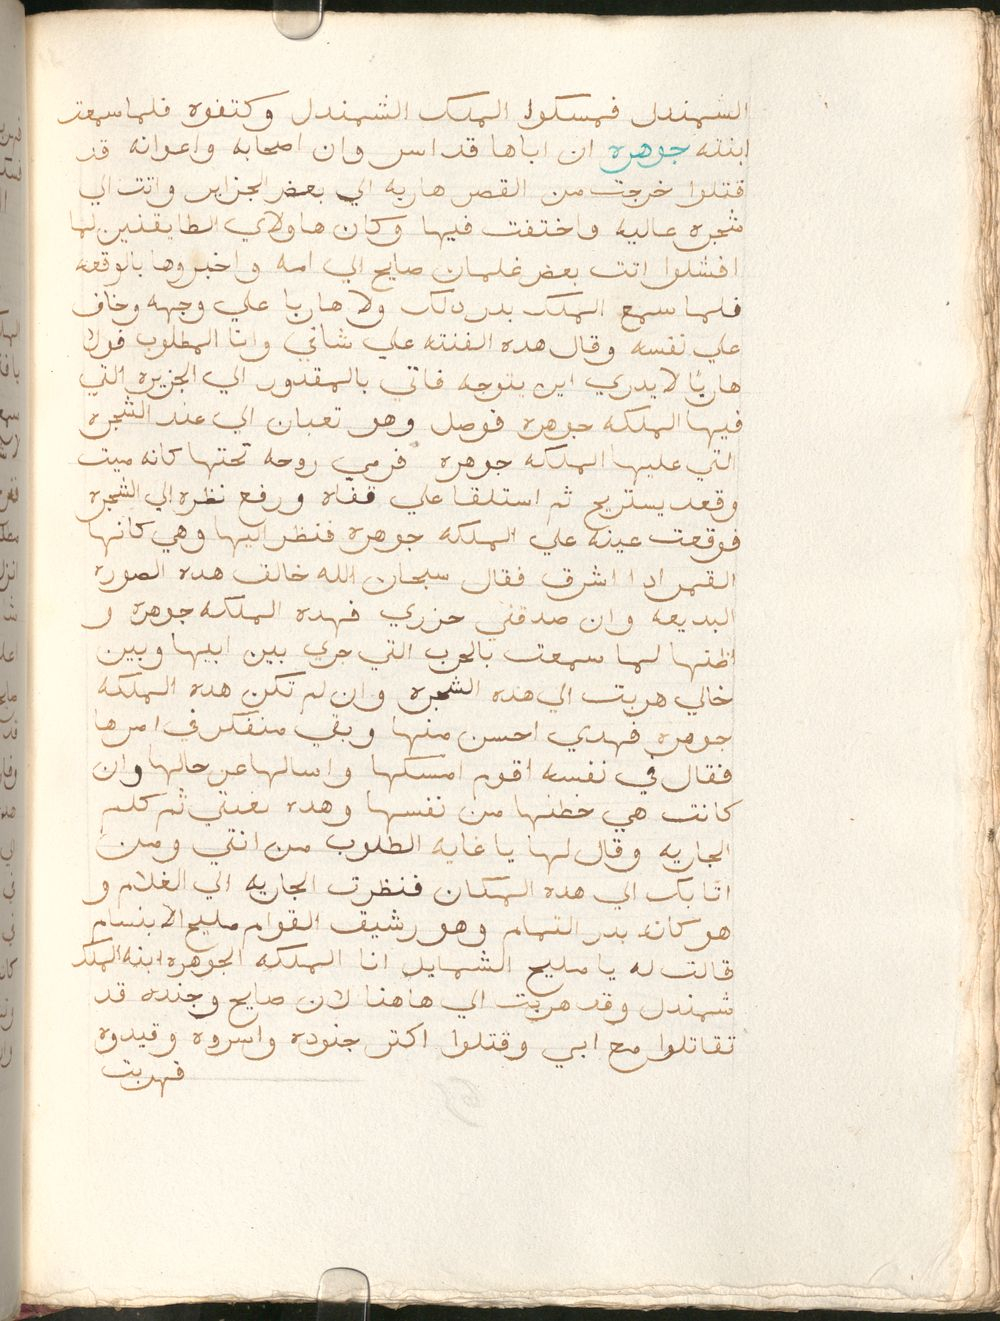 الشمندل فمسكوا الملك الشمندل وكتفوه فلما سمعت
ابنته جوهره ان اباها قد اسر وان اصحابه واعوانه قد
قتلوا خرجت من القصر هاربه الي بعض الجزاير واتت الي
شجره عاليه واختفت فيها وكان هاولاي الطايفتين لما
افشلوا اتت بعض غلمان صايح الي امه واخبروها بالوقعه
فلما سمع الملك بدر دلك ولا هاربا علي وجهه وخاف
علي نفسه وقال هده الفتنه علي شاني وانا المطلوب فولا
هاربا لا يدري اين يتوجه فاتي بالمقدور الي الجزيره التي
فيها الملكه جوهره فوصل وهو تعبان الي عند الشجره
التي عليها الملكه جوهره فرمي روحه تحتها كانه ميت
وقعد يستريح ثم استلقا علي قفاه ورفع نظره الي الشجره
فوقعت عينه علي الملكه جوهره فنظر اليها وهي كانها
القمر ادا اشرق فقال سبحان الله خالق هده الصوره
البديعه وان صدقني حزري فهده الملكه جوهره و
اظنها لما سمعت بالحرب التي جري بين ابيها وبين
خالي هربت الي هده الشجره وان لم تكن هده الملكه
جوهره فهدي احسن منها وبقي متفكر في امرها
فقال في نفسه اقوم امسكها واسالها عن حالها وان
كانت هي خطبتها من نفسها وهده بغيتي ثم كلم
الجاريه وقال لها يا غايه الطلوب من انتي ومن
اتا بك الي هده المكان فنظرت الجاريه الي الغلام و
هو كانه بدر التمام وهو رشيق القوام مليح الابتسام
قالت له يا مليح الشمايل انا الملكه الجوهره ابنه الملك
شمندل وقد هربت الي هاهنا لان صايح وجنده قد
تقاتلوا مع ابي وقتلوا اكتر جنوده واسروه وقيدوه
فهربت